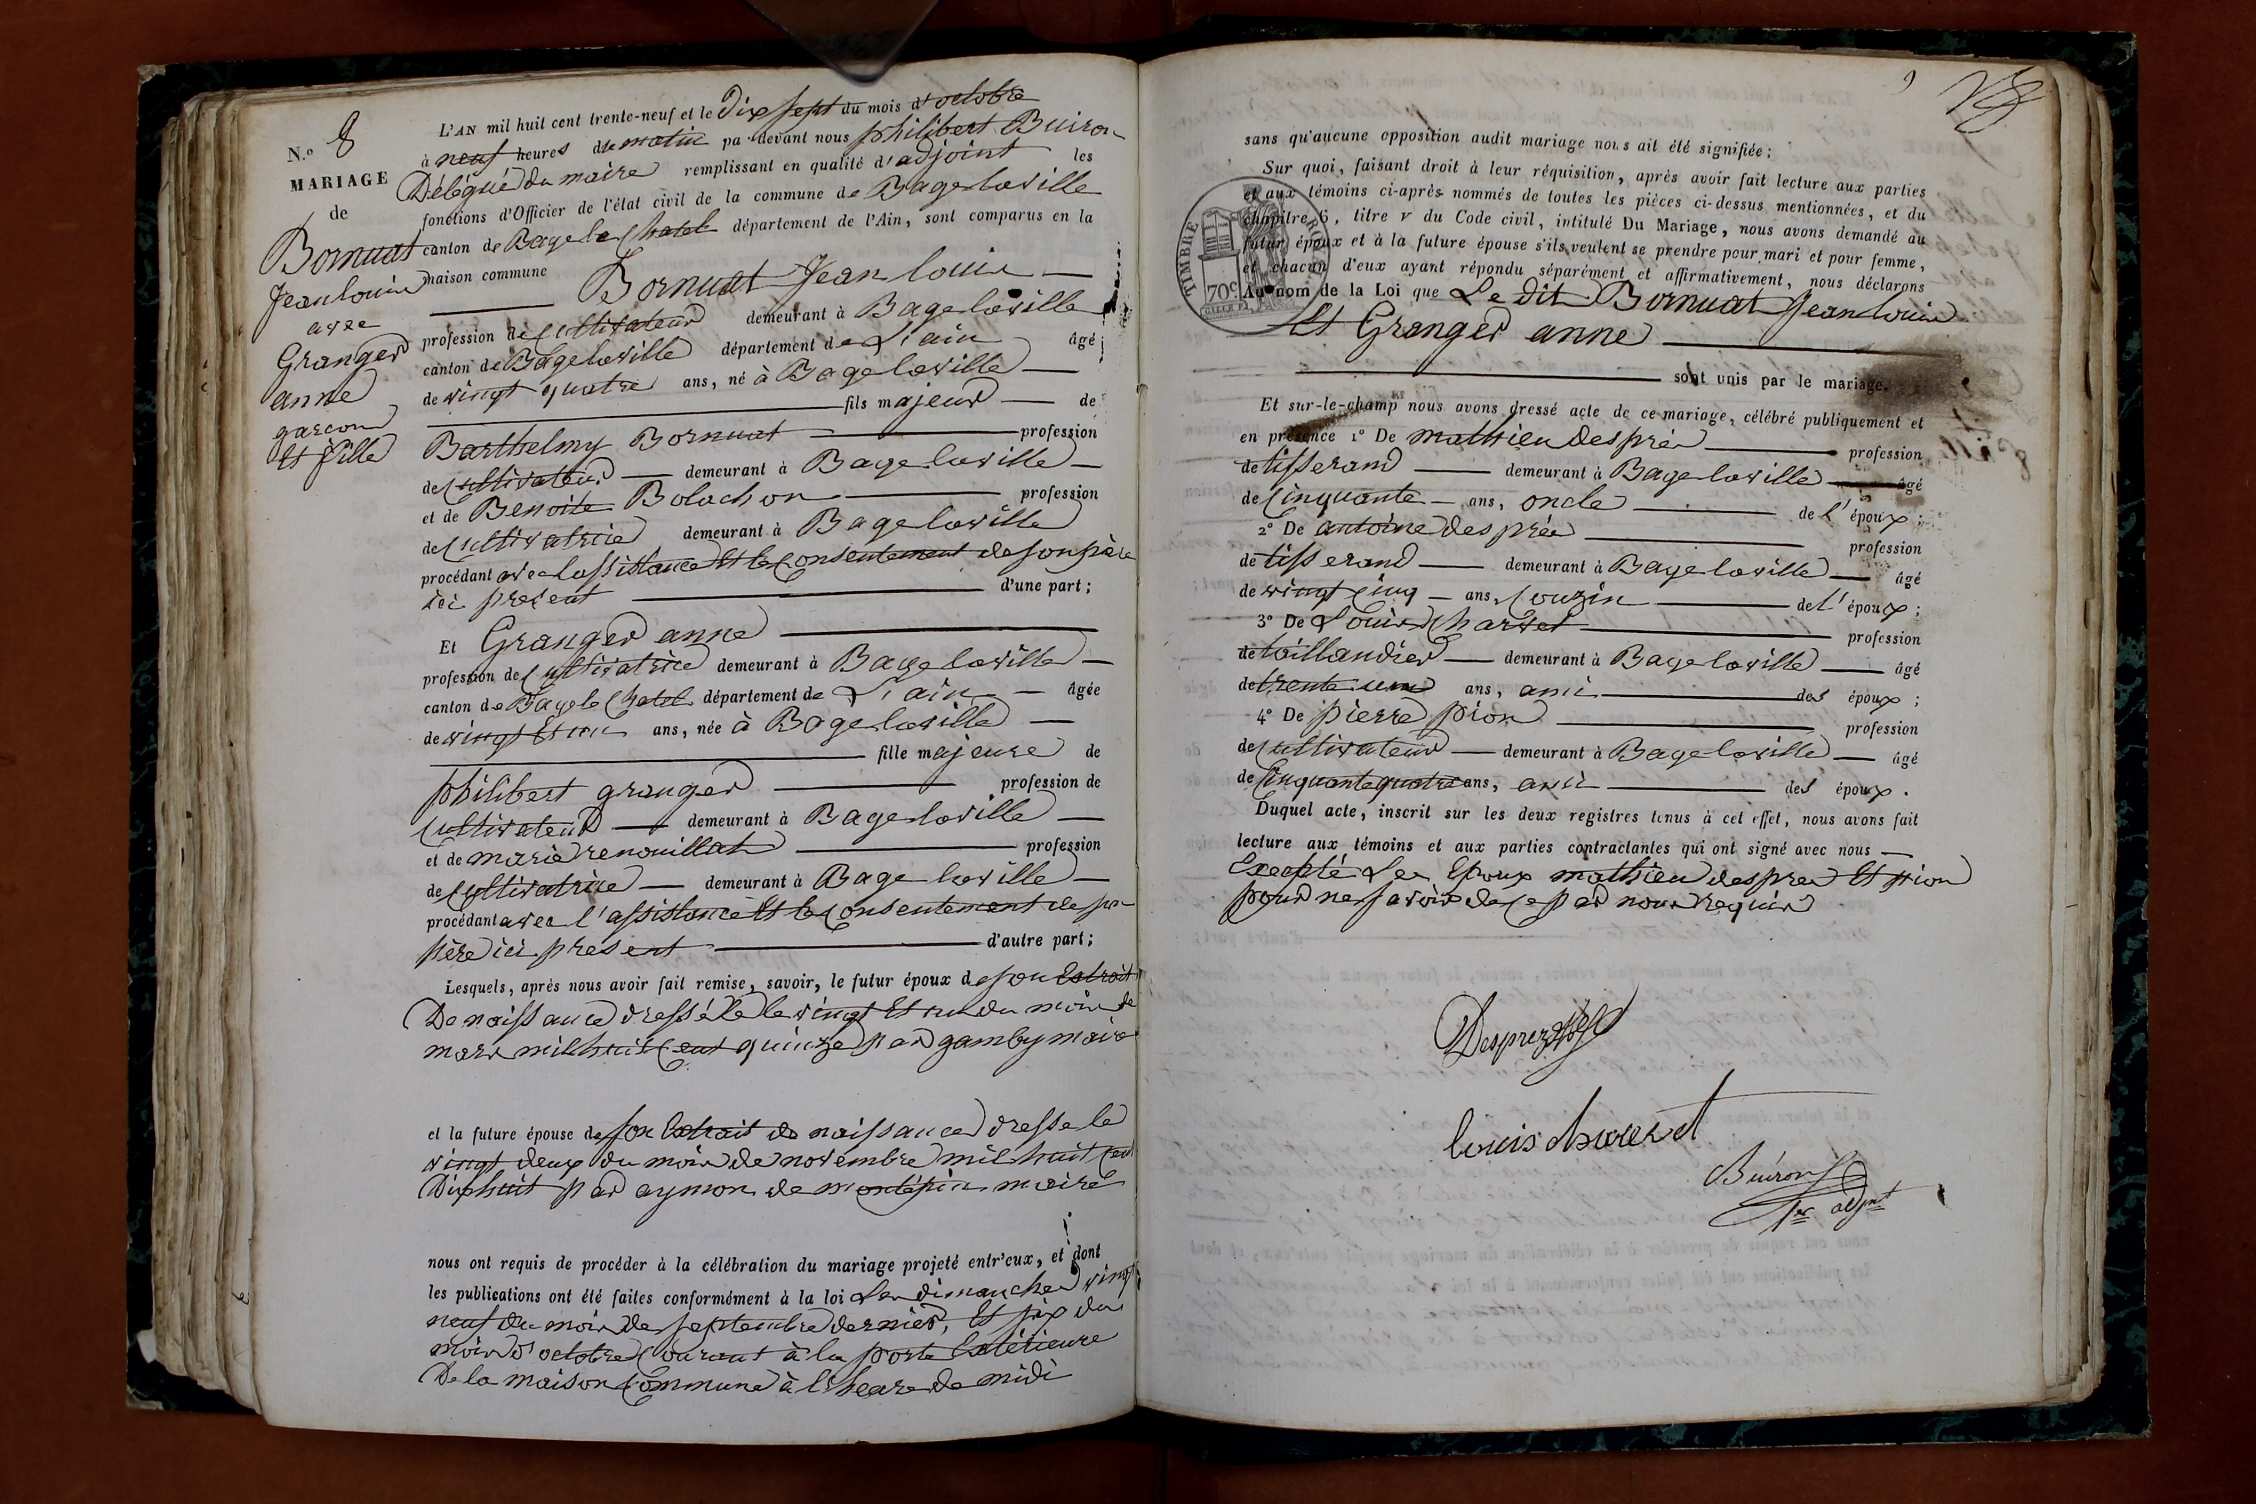 N.º 8
MARIAGE
de
Bornuat
Jean louis
avec
Granger
anne
garçon
Et fille
L'AN mil huit cent trente-neuf et le Dix sept du mois d'octobre
à neuf heures du matin pa devant nous philibert Buiron
Délégué du maire remplissant en qualité d'adjoint les
fonctions d'Officier de l'état civil de la commune de Bagelaville
canton de Bage le Chatel département de l'Ain, sont comparus en la
maison commune Bornuat Jean louis
profession de Cultivateur demeurant à Bagelaville
canton de Bagelaville département de L'ain âgé
de vingt quatre ans, né à Bagelaville
fils majeur de
Barthelmy Bornuat profession
de Cultivateur demeurant à Bagelaville
et de Benoite Bolachon profession
de Cultivatrice demeurant à Bagelaville
procédant avec lassistance Et le Consentement de son père
ici present d'une part;
Et Granger anne
profession de Cultivatrice demeurant à Bagelaville
canton de Bage le Chatel département de L'ain âgée
de vingt Et un ans, née à Bagelaville
fille majeure de
philibert granger profession de
Cultivateur demeurant à Bagelaville
et de marie renouillat profession
de Cultivatrice demeurant à Bagelaville
procédant avec l'assistance Et le Consentement de son
père ici present d'autre part;
Lesquels, après nous avoir fait remise, savoir, le futur époux de son Extrait
De naissance dressé le vingt Et un du mois de
mars mil huit Cent quinze par gamby maire
et la future épouse de son Extrait de naissance dresse le
vingt deux du mois de novembre mil huit Cent
Dix huit par aymon de montépin maire
nous ont requis de procéder à la célébration du mariage projeté entr'eux, et dont
les publications ont été faites conformément à la loi Les dimanches vingt
neuf du mois de septembre dernier, Et six du
mois d'octobre Courant à la porte Extérieure
De la maison Commune à l'heure de midi
9
sans qu'aucune opposition audit mariage nous ait été signifiée;
Sur quoi, faisant droit à leur réquisition, après avoir fait lecture aux parties
et aux témoins ci-après nommés de toutes les pièces ci-dessus mentionnées, et du
chapitre 6, titre V du Code civil, intitulé Du Mariage, nous avons demandé au
futur époux et à la future épouse s'ils veulent se prendre pour mari et pour femme,
et chacun d'eux ayant répondu séparément et affirmativement, nous déclarons
Au nom de la Loi que Le dit Bornuat Jean louis
Et Granger anne
sont unis par le mariage.
TIMBRE ROYAL
70c
Et sur-le-champ nous avons dressé acte de ce mariage, célébré publiquement et
en présence 1º De mathieu Desprès profession
de tisserand demeurant à Bagelaville âgé
de Cinquante ans, oncle de l'époux;
2º De antoine després profession
de tisserand demeurant à Bagelaville âgé
de vingt Cinq ans, Couzin de l'époux;
3º De Louis Charvet profession
de taillandier demeurant à Bagelaville âgé
de trente un ans, ami des époux;
4º De pierre pion profession
de Cultivateur demeurant à Bagelaville âgé
de Cinquante quatre ans, ami des époux.
Duquel acte, inscrit sur les deux registres tenus à cet effet, nous avons fait
lecture aux témoins et aux parties contractantes qui ont signé avec nous
Excepté Les Epoux mathieu despres Et pion
pour ne savoir de Ce par nous requis
Desprez
louis charvet
Buiron
1er adjnt